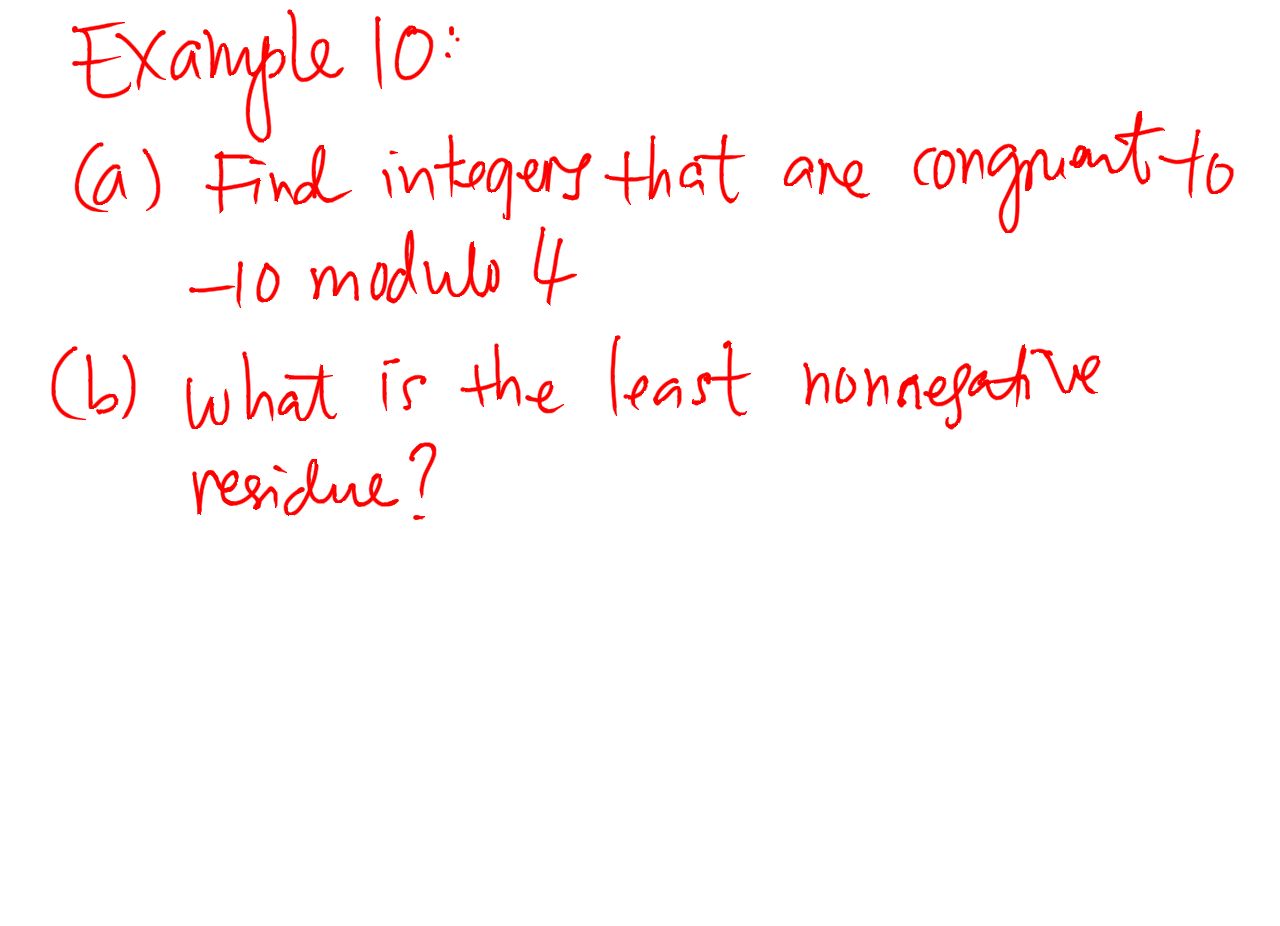 Example 10:
(a) Find integers that are congruent to
-10 modulo 4
(b) what is the least nonnegative
residue?